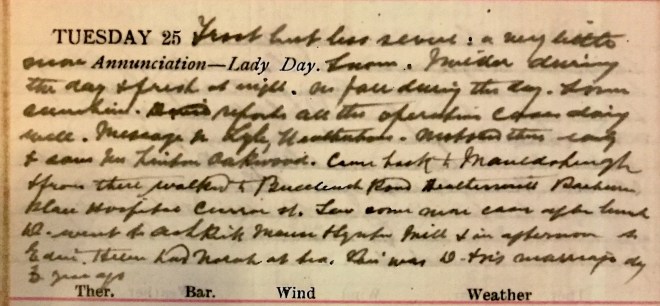 TUESDAY 25 Frost but less severe: a very little
snow Annunciation—Lady Day. Snow. Milder during
the day & fresh at night. no fall during the day. Some
sunshine. reports all the operation cases doing
well. Message to Lyle, Heatherbrae. Motored there early
& saw Mrs Linton Oakwood. Came back to
& from there walked to Buccleuch Road Heathermill
Place Hospital Curror st. Saw some more cases after lunch
D. went to Ashkirk Manse & Synton Mill & in afternoon to
Edin. Helen had Norah at tea. This was D & marriage day
years ago
Ther. Bar. Wind Weather